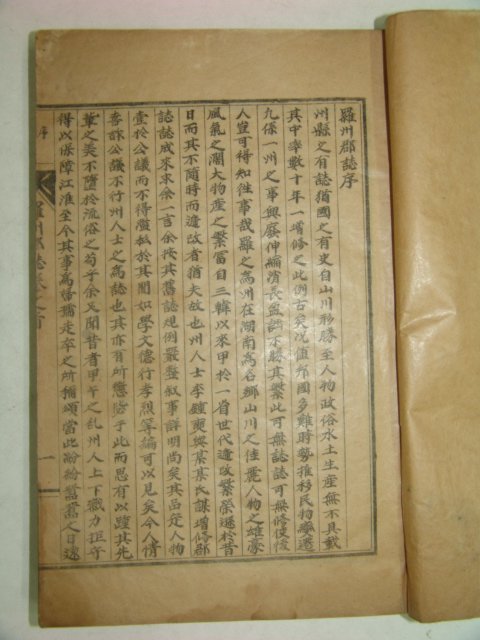 羅州郡誌序
州縣之有誌猶國之有史自山川形勝至人物政俗水土生産無不具載
其中率數十年一增修之此例古矣况值邦國多難時勢推移民物
九係一州之事興廢伸縮消長盈 不勝其繁此可無誌誌可無修使後
人豈可得知徃事哉羅之爲州在湖南爲名鄕山川之佳麗人物之雄豪
風氣之濶大物產之繁富自三韓以來甲於一省世代遞改繁榮遜於昔
日而其不隨時而遞改者猶夫故也州人士李鍾 與某某氏謀增修郡
誌誌成來求余一言余按其舊誌規例嚴整敘事詳明尚矣其品定人物
壹於公議而不得 於其間如學文儒行孝烈等編可以見矣今人情
公議不行州人士之爲誌也其亦有所懲 于此而思有以踵其先
輩之美不墮於流俗之 乎余又聞昔者甲午之亂州人上下戮力拒守
得以保障江淮至今其事爲婦孺走卒之所 頌當此紛紛 之日速
序
羅州郡誌卷之首
一